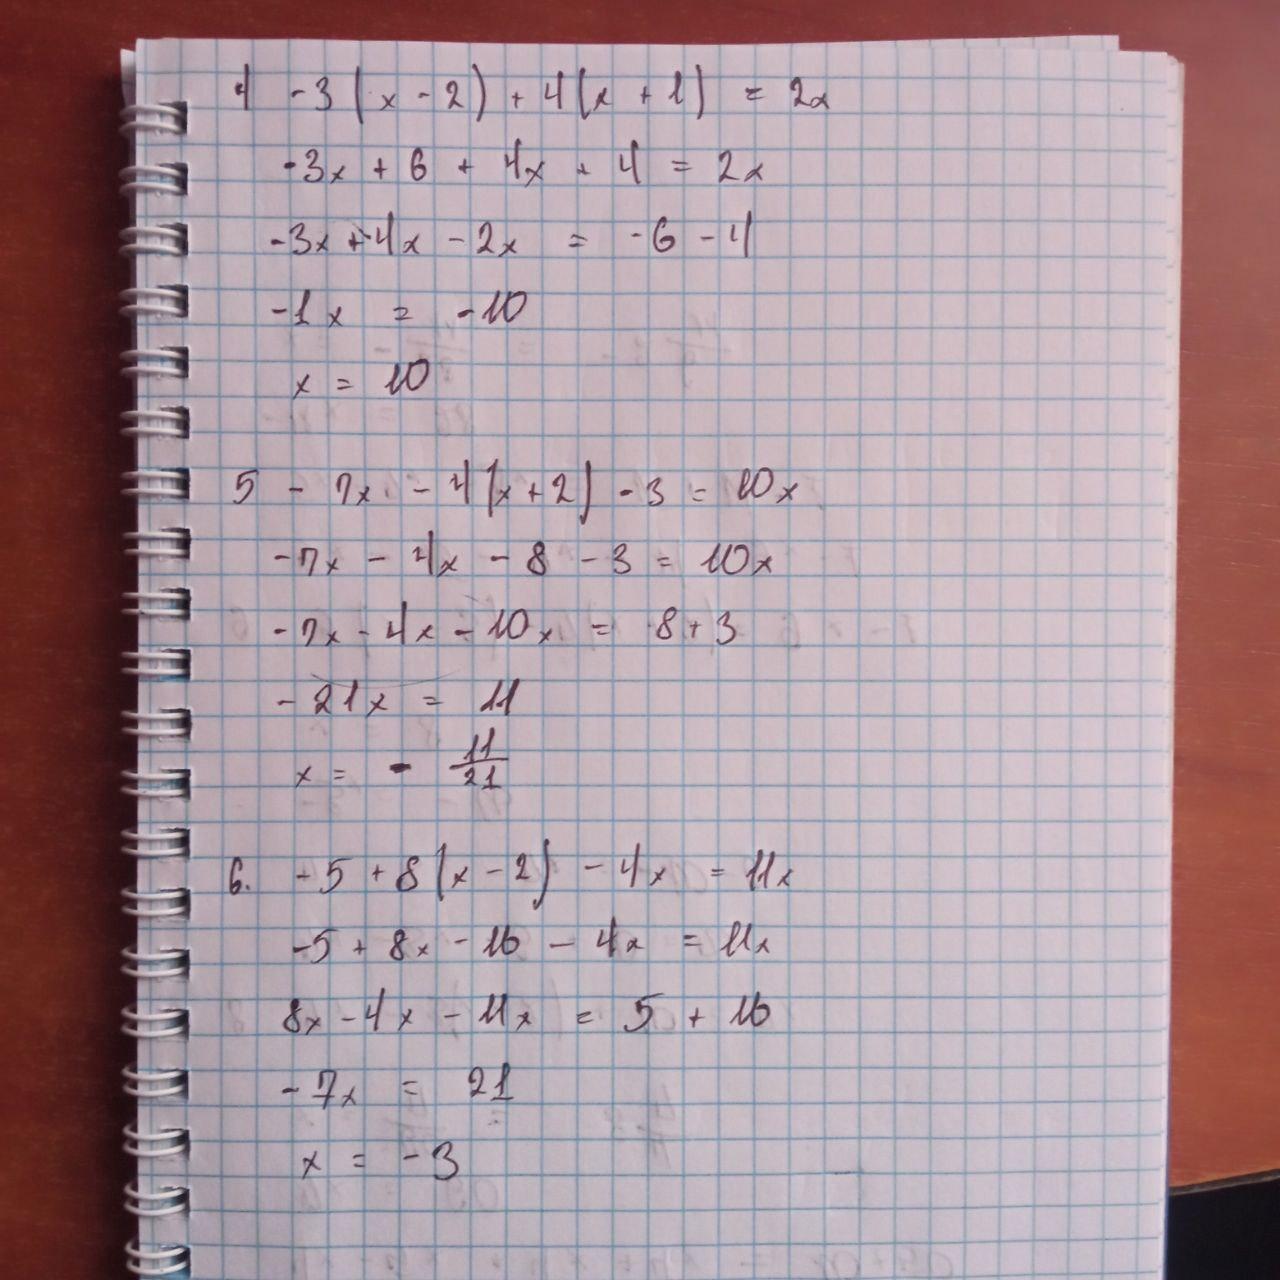 4 -3(x-2)+4(x+1) = 2x
-3x+6+4x+4=2x
-3x+4x-2x = -6-4
-1x = -10
x = 10
5 -7x-4(x+2)-3=10x
-7x-4x-8-3=10x
-7x-4x-10x=8+3
-21x = 11
x = -11/21
6. -5+8(x-2)-4x=11x
-5+8x-16-4x=11x
8x-4x-11x = 5+16
-7x = 21
x = -3